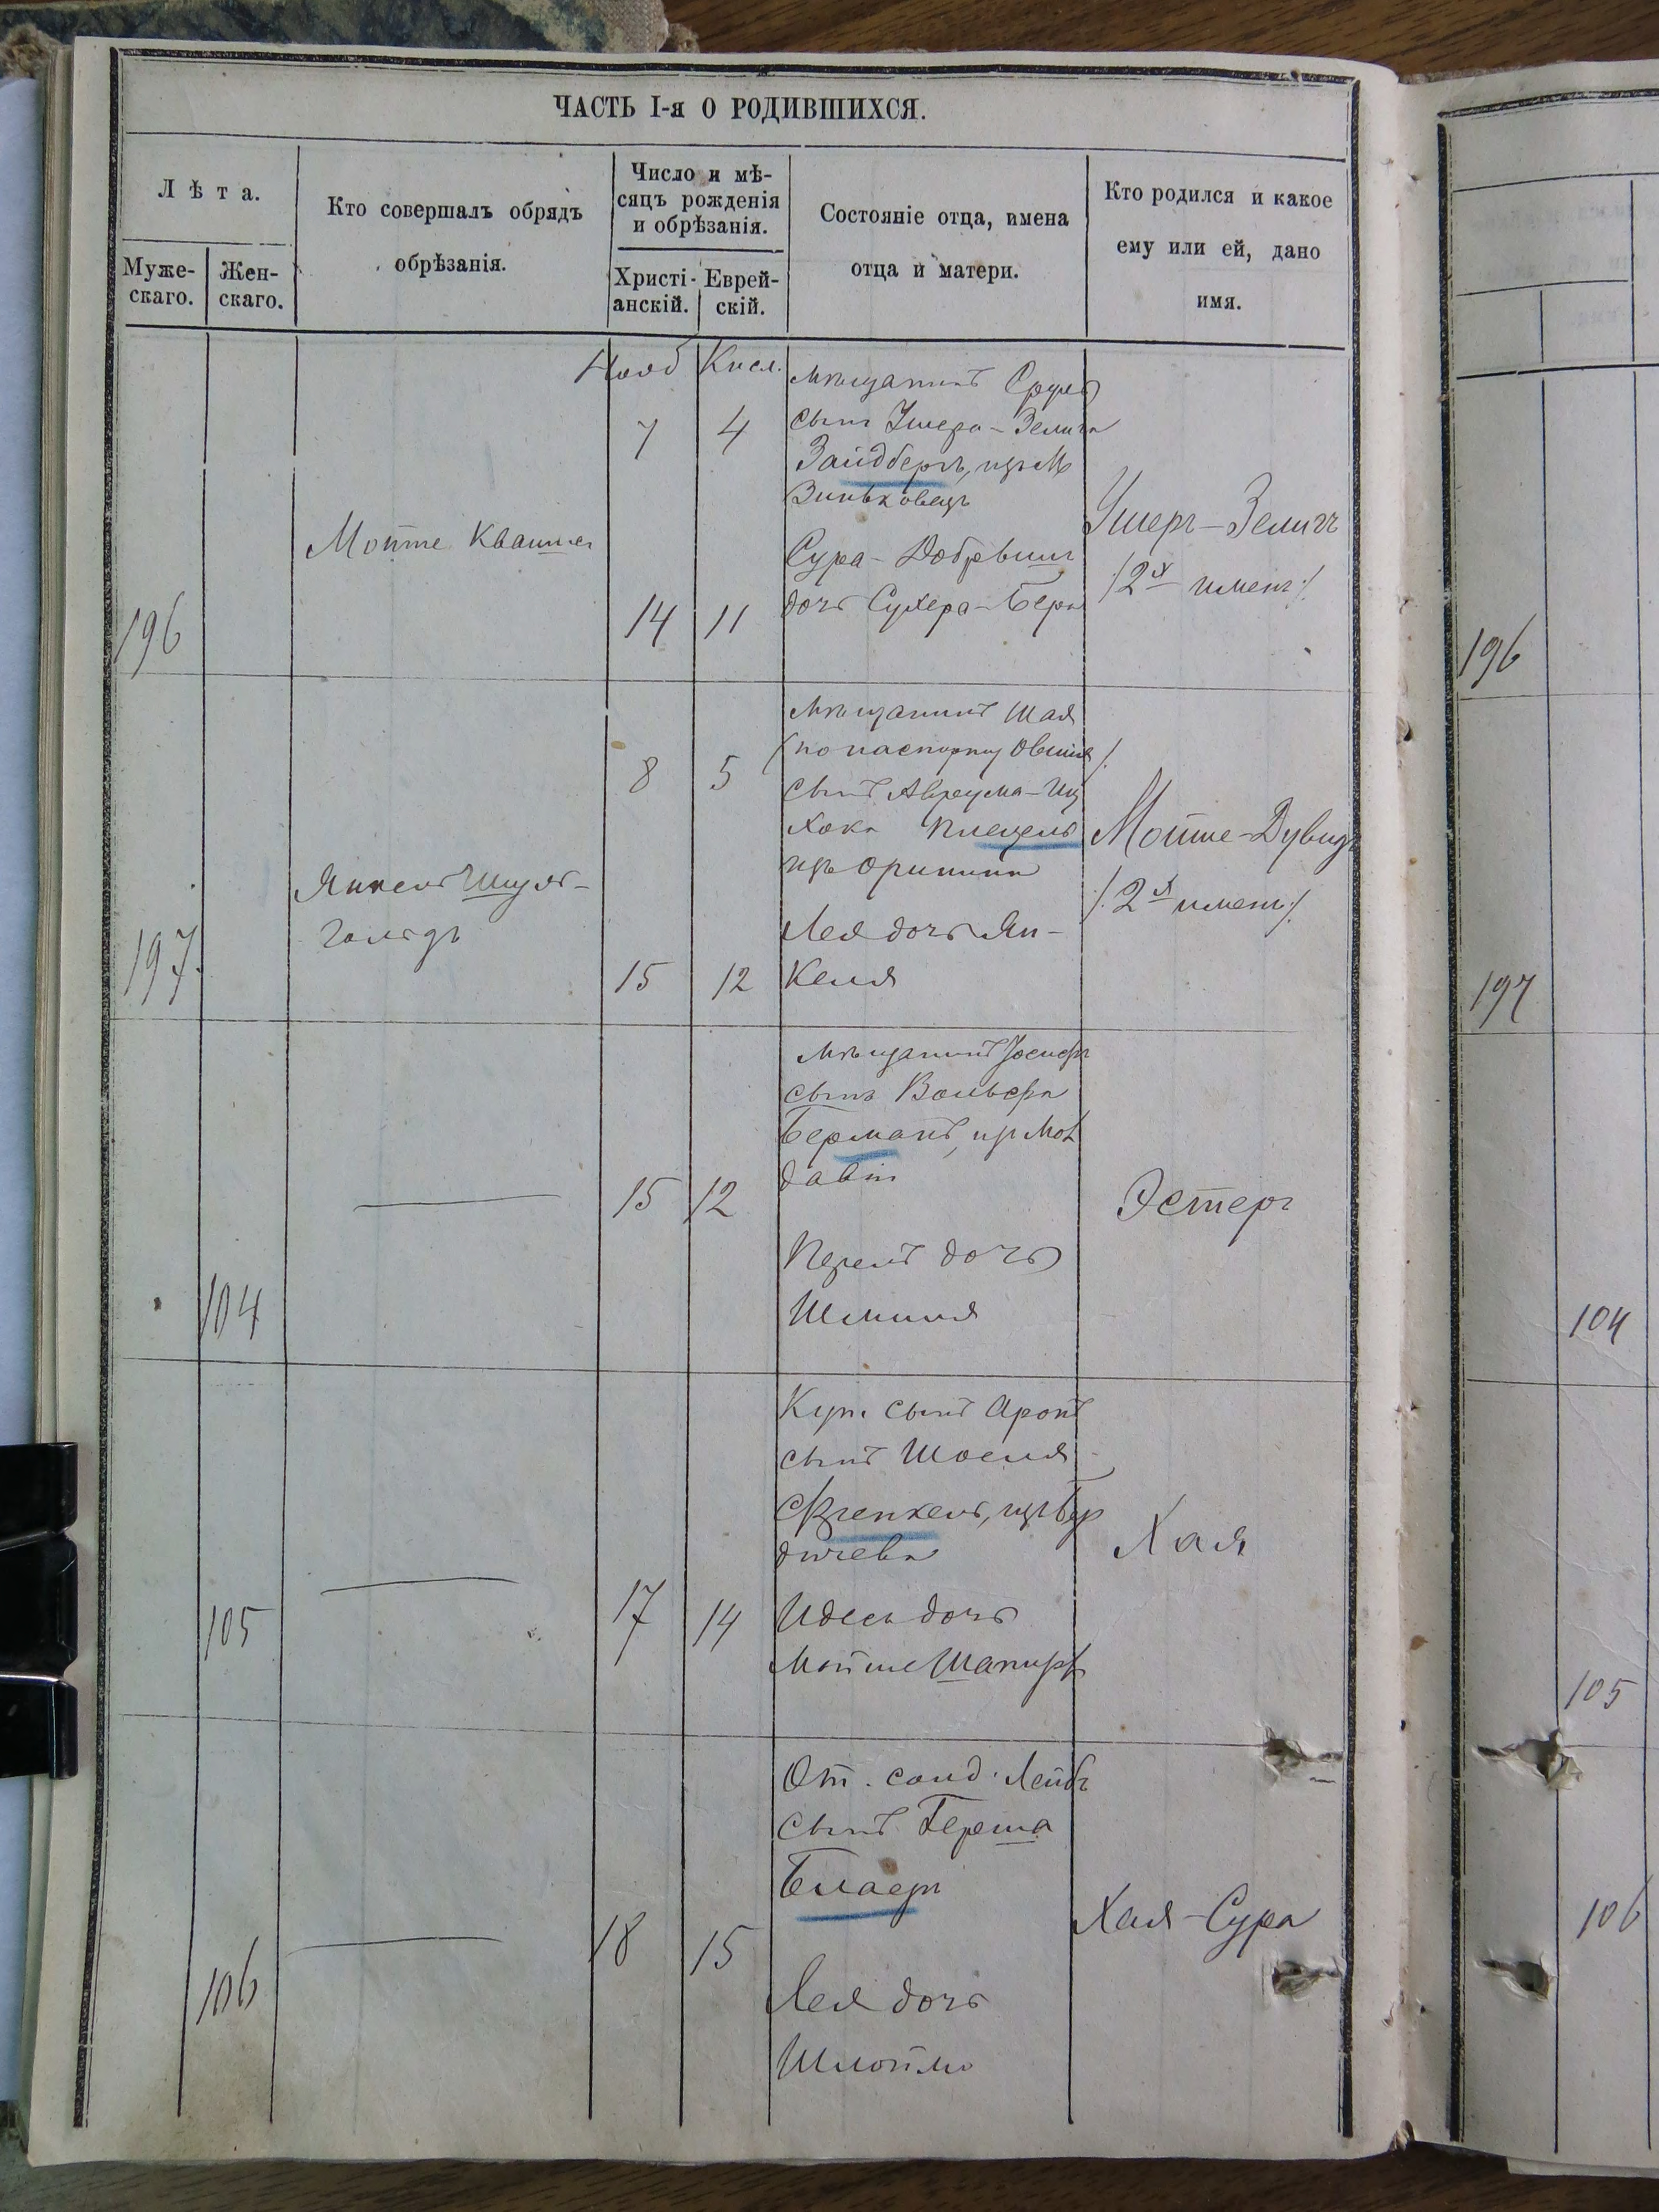 ЧАСТЬ I-я О РОДИВШИХСЯ.
Лѣта.
Муже-
скаго.
Жен-
скаго.
Кто совершалъ обрядъ
обрѣзанія.
Число и мѣ-
сяцъ рожденія
и обрѣзанія.
Христі-
анскій.
Еврей-
скій.
Состояніе отца, имена
отца и матери.
Кто родился и какое
ему или ей, дано
имя.
196
Мойше Квашнер
Нояб
7
14
Кисл.
4
11
мѣщанинъ Сруль
сынъ Ушера-Зелига
Зайдбергъ, изъ м
Виньковецъ
Сура-Добрышъ
дочь Сухера-Бера
Ушеръ-Зелигъ
/2х именъ/
197.
Янкель Шуль-
гольдъ
8
15
5
12
мѣщанинъ Шая
(по паспорту Овшія/
сынъ Аврума-Иц
хока Плецель
изъ Оринина
Лея дочь Ян-
келя
Мойше-Дувидъ
/.2х именъ/.
104
15
12
мѣщанинъ Іосифъ
сынъ Вольфа
Берманъ, изъ Мол
давіи
Перель дочь
Шмиля
Эстеръ
105
17
14
Куп. сынъ Аронъ
сынъ Шоеля
Френкель, изъ Бер
дичева
Идесъ дочь
Мойше Шапиръ
Хая
106
18
15
От. солд. Лейбъ
сынъ Герша
Блаеръ
Лея дочь
Шлоймы
Хая-Сура
196
197
104
105
106